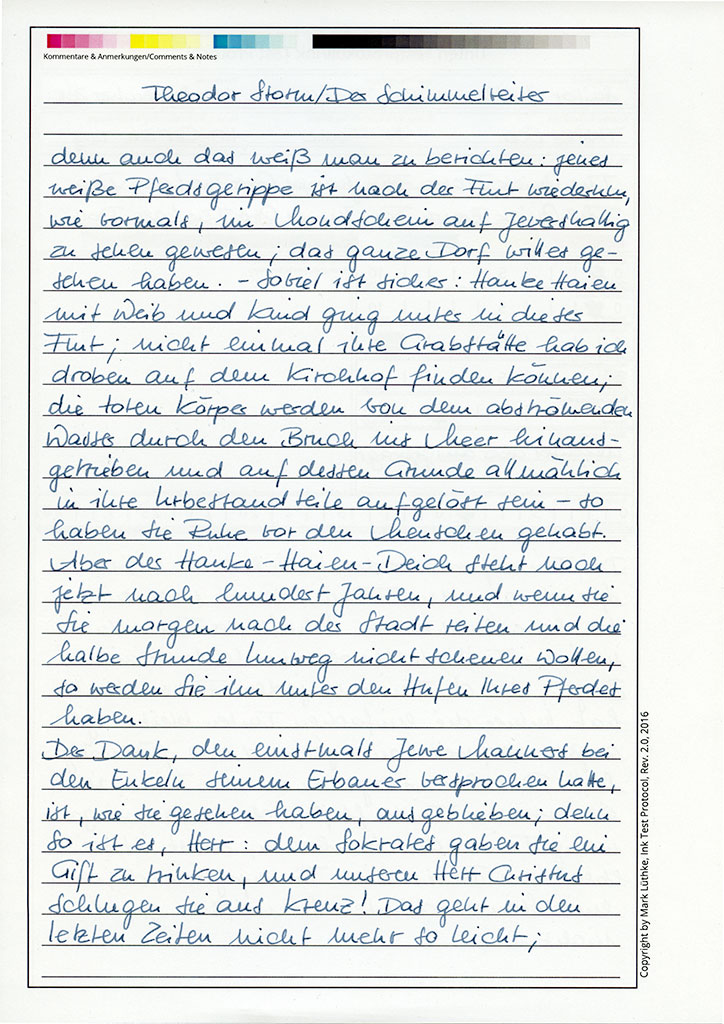 Kommentare & Anmerkungen/Comments & Notes
Theodor Storm/Der Schimmelreiter
denn auch das weiß man zu berichten: jenes
weiße Pferdsgerippe ist nach der Flut wiederum,
wie vormals, im Mondschein auf Jevershallig
zu sehen gewesen; das ganze Dorf will es ge-
sehen haben. - Soviel ist sicher: Hauke Haien
mit Weib und Kind ging unter in dieser
Flut; nicht einmal ihre Grabstätte hab ich
droben auf dem Kirchhof finden können;
die toten Körper werden von dem abströmenden
Wasser durch den Bruch ins Meer hinaus-
getrieben und auf dessen Grunde allmählich
in ihre Urbestandteile aufgelöst sein - so
haben sie Ruhe vor den Menschen gehabt.
Aber der Hauke-Haien-Deich steht noch
jetzt nach hundert Jahren, und wenn sie
Sie morgen nach der Stadt reiten und die
halbe Stunde Umweg nicht scheuen wollen,
so werden Sie ihn unter den Hufen Ihres Pferdes
haben.
Der Dank, den einstmals Jewe Manners bei
den Enkeln seinem Erbauer versprochen hatte,
ist, wie sie gesehen haben, ausgeblieben; denn
so ist es, Herr: dem Sokrates gaben sie ein
Gift zu trinken, und unseren Herr Christus
schlugen sie ans Kreuz! Das geht in den
letzten Zeiten nicht mehr so leicht;
Copyright by Mark Lüthke, Ink Test Protocol, Rev. 2.0, 2016